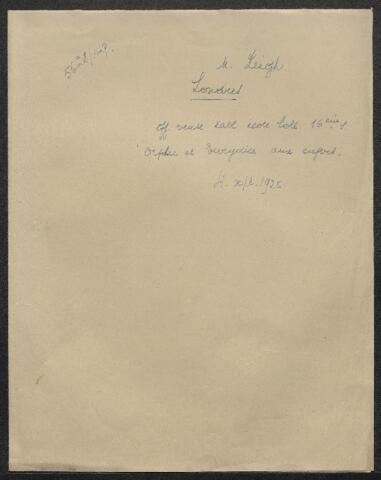 M. Leigh
Londres
off. vente tabl. école holl. 16ème s
Orphée et Eurydice aux enfers.
1925